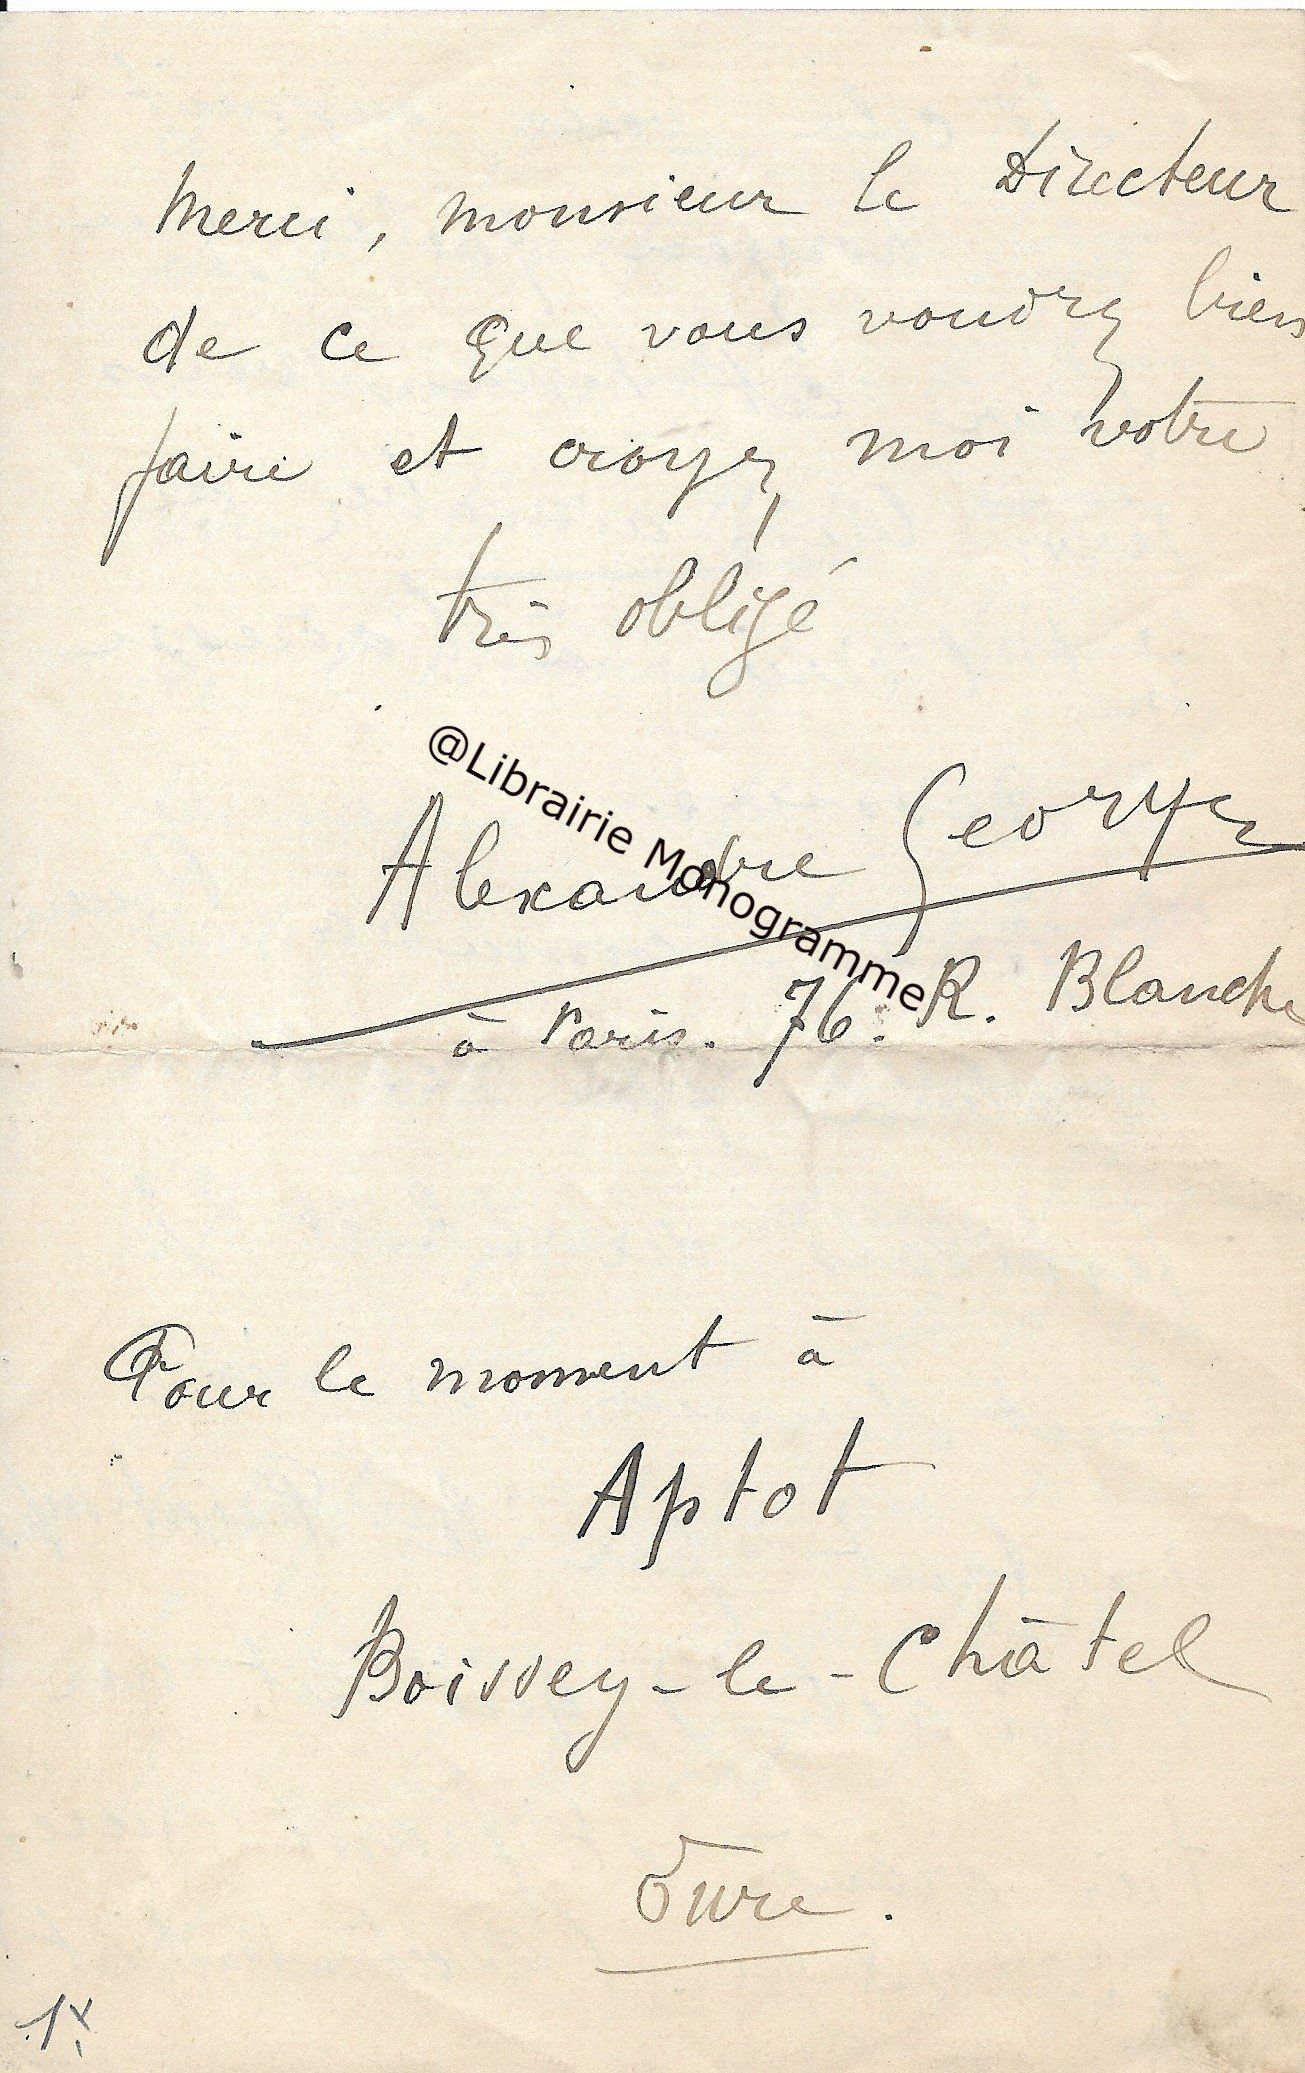 Merci, monsieur le Directeur
de ce que vous voudrez bien
faire et croyez moi votre
très obligé
@Librairie Monogramme
Alexandre Georges
à Paris. 76. R. Blanche
Pour le moment à
Aptot
Boissey-le-Châtel
Eure.